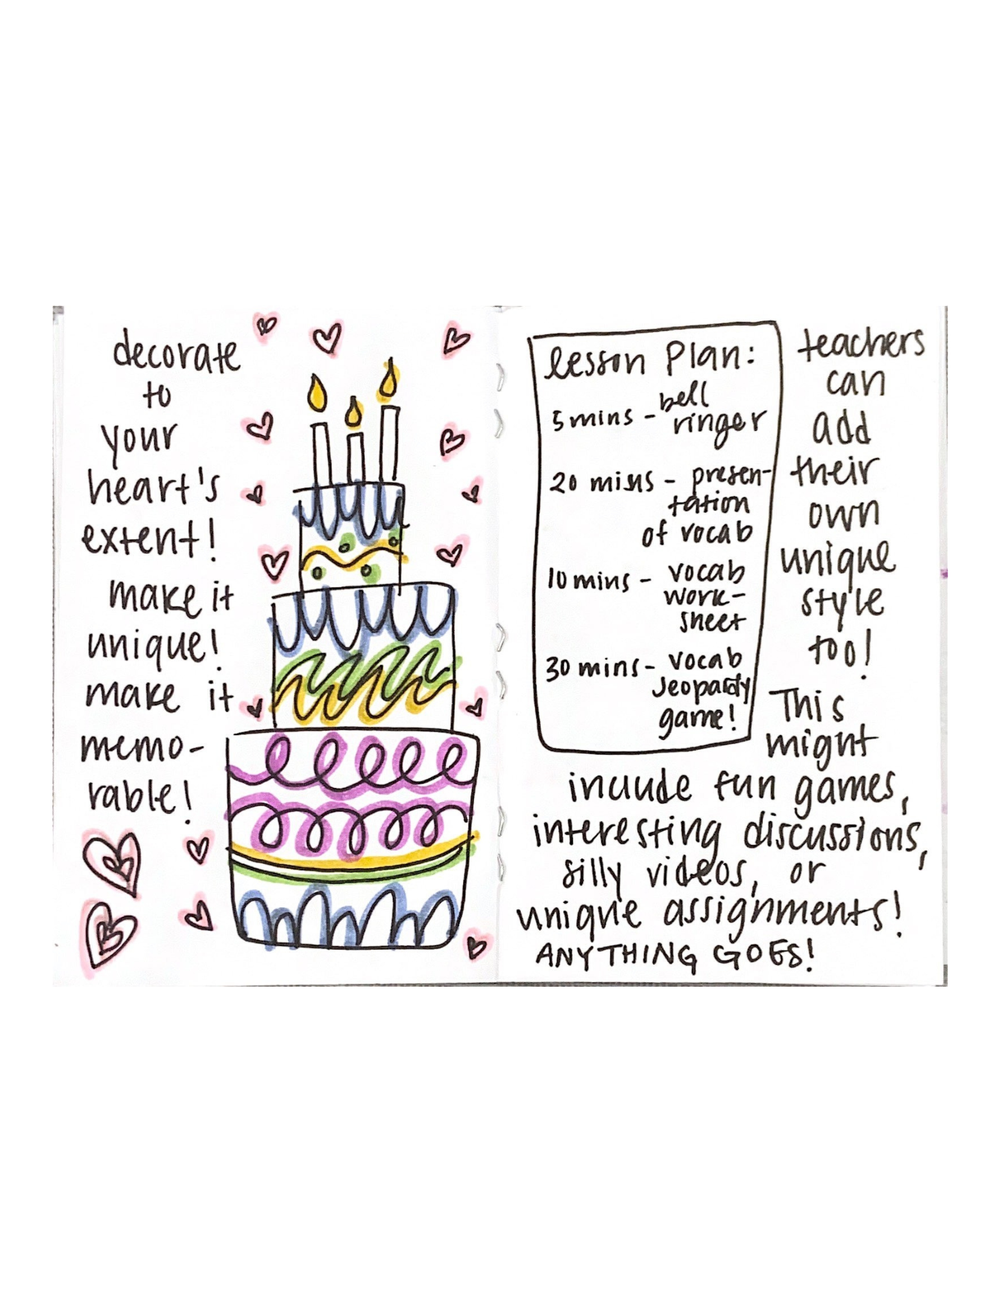 decorate
to
your
heart's
extent!
make it
unique!
make it
memo-
rable!
lesson Plan:
5 mins - bell
ringer
20 mins - presen-
tation
of vocab
10 mins - vocab
work-
sheet
30 mins - vocab
Jeopardy
game!
teachers
can
add
their
own
unique
style
too!
This
might
include fun games,
interesting discussions,
silly videos, or
unique assignments!
ANYTHING GOES!